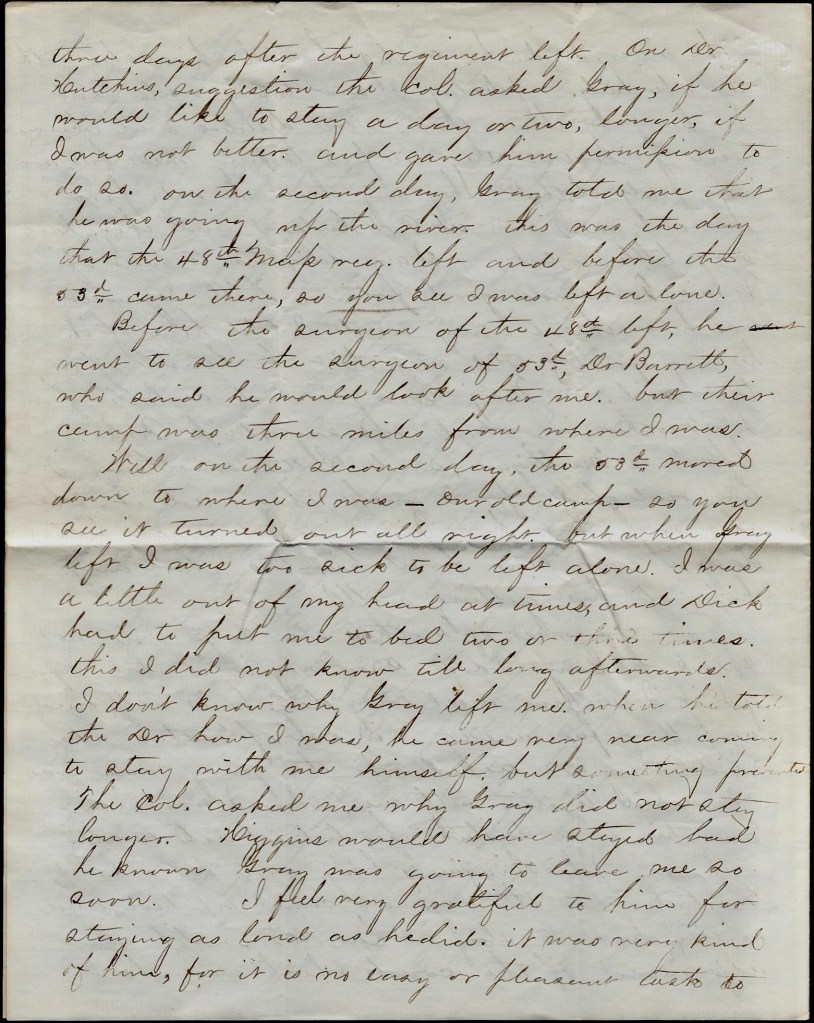 three days after the regiment left. On Dr
Hutchins, suggestion the Col. asked Gray, if he
would like to stay a day or two, longer, if
I was not better. and gave him permission to
do so. on the second day, Gray told me that
he was going up the river. this was the day
that the 48th Mass reg. left and before the
53d came there, so you see I was left a lone.
Before the surgeon of the 48th left, he went
went to see the surgeon of 53d, Dr Barrett,
who said he would look after me. but their
camp was three miles from where I was.
Well on the second day, the 53d moved
down to where I was – our old camp – so you
see it turned out all right. but when Gray
left I was too sick to be left alone. I was
a little out of my head at times, and Dick
had to put me to bed two or three times.
this I did not know till long afterwards.
I don't know why Gray left me. when he told
the Dr how I was, he came very near coming
to stay with me himself. but something prevented
The Col. asked me why Gray did not stay
longer. Higgins would have stayed had
he known Gray was going to leave me so
soon. I feel very gratiful to him for
staying as lond as he did. it was very kind
of him, for it is no easy or pleasant task to